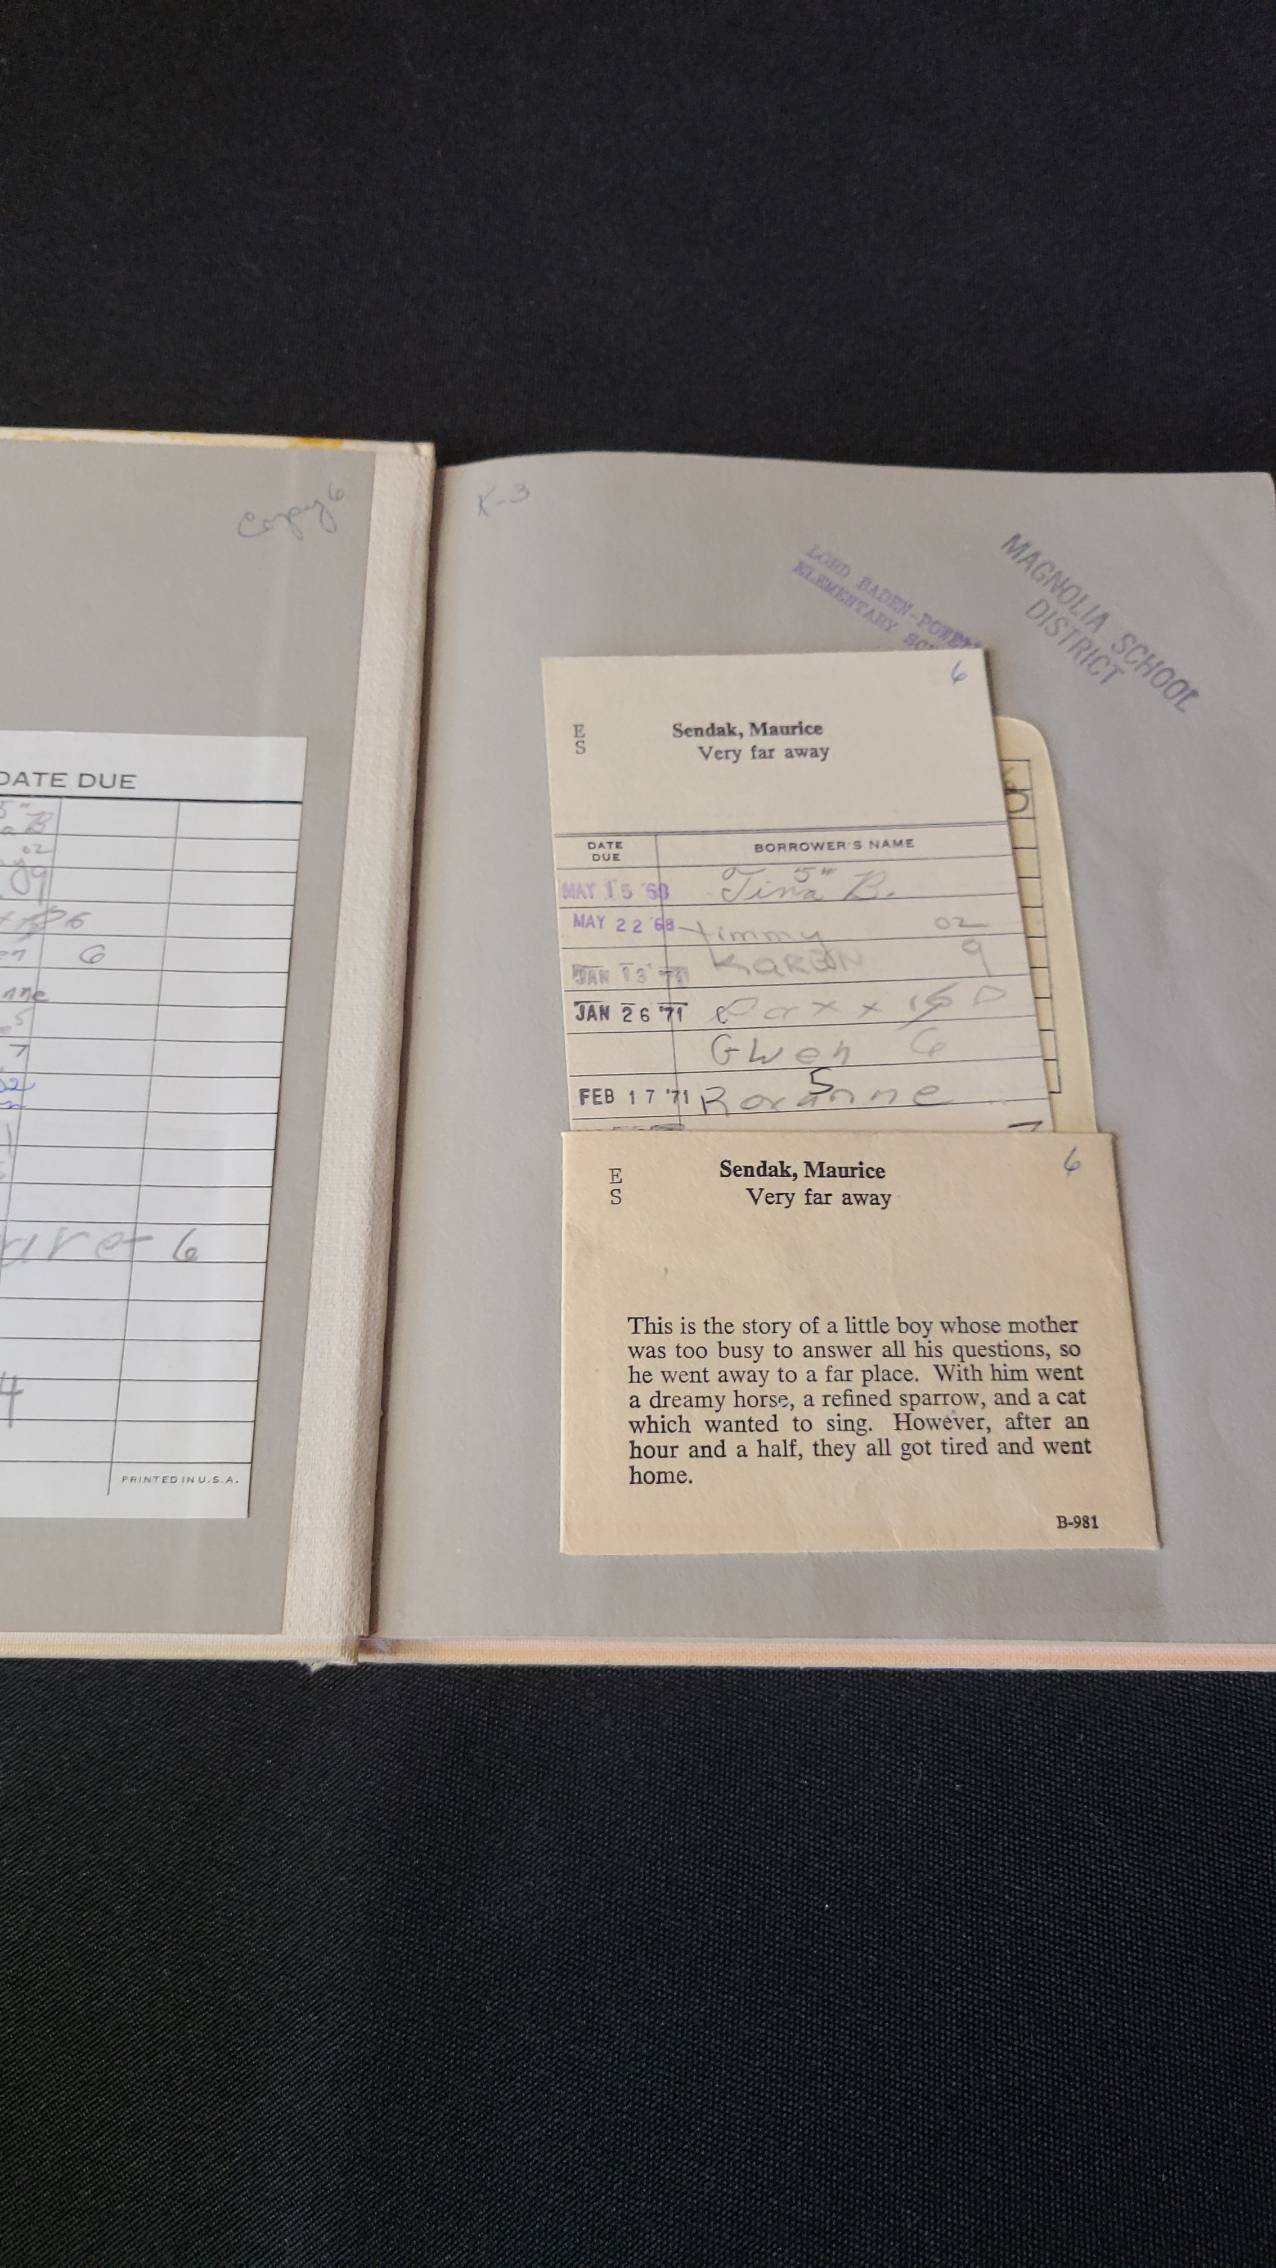 Copy 6
DATE DUE
5"
a B
02
09
6
en 6
nne
5
7
02
6
4
PRINTED IN U.S.A.
K-3
LORD BADEN-POWELL
ELEMENTARY
MAGNOLIA SCHOOL
DISTRICT
6
E
S
Sendak, Maurice
Very far away
DATE
DUE
BORROWER'S NAME
MAY 15 '68 Tina B. 5"
MAY 22 '68 timmy 02
JAN 13 '71 KAREN 9
JAN 26 '71
Gwen 6
FEB 17 '71 Roxanne 5
7
E
S
Sendak, Maurice
Very far away
6
This is the story of a little boy whose mother
was too busy to answer all his questions, so
he went away to a far place. With him went
a dreamy horse, a refined sparrow, and a cat
which wanted to sing. However, after an
hour and a half, they all got tired and went
home.
B-981